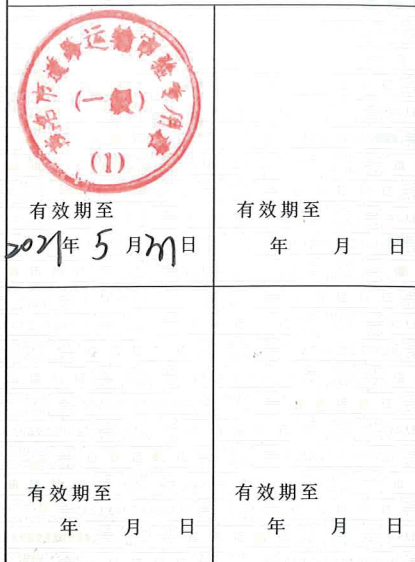 茂名市道路运输审验专用章
(一级)
(1)
有效期至
2021年 5 月31日
有效期至
年 月 日
有效期至
年 月 日
有效期至
年 月 日